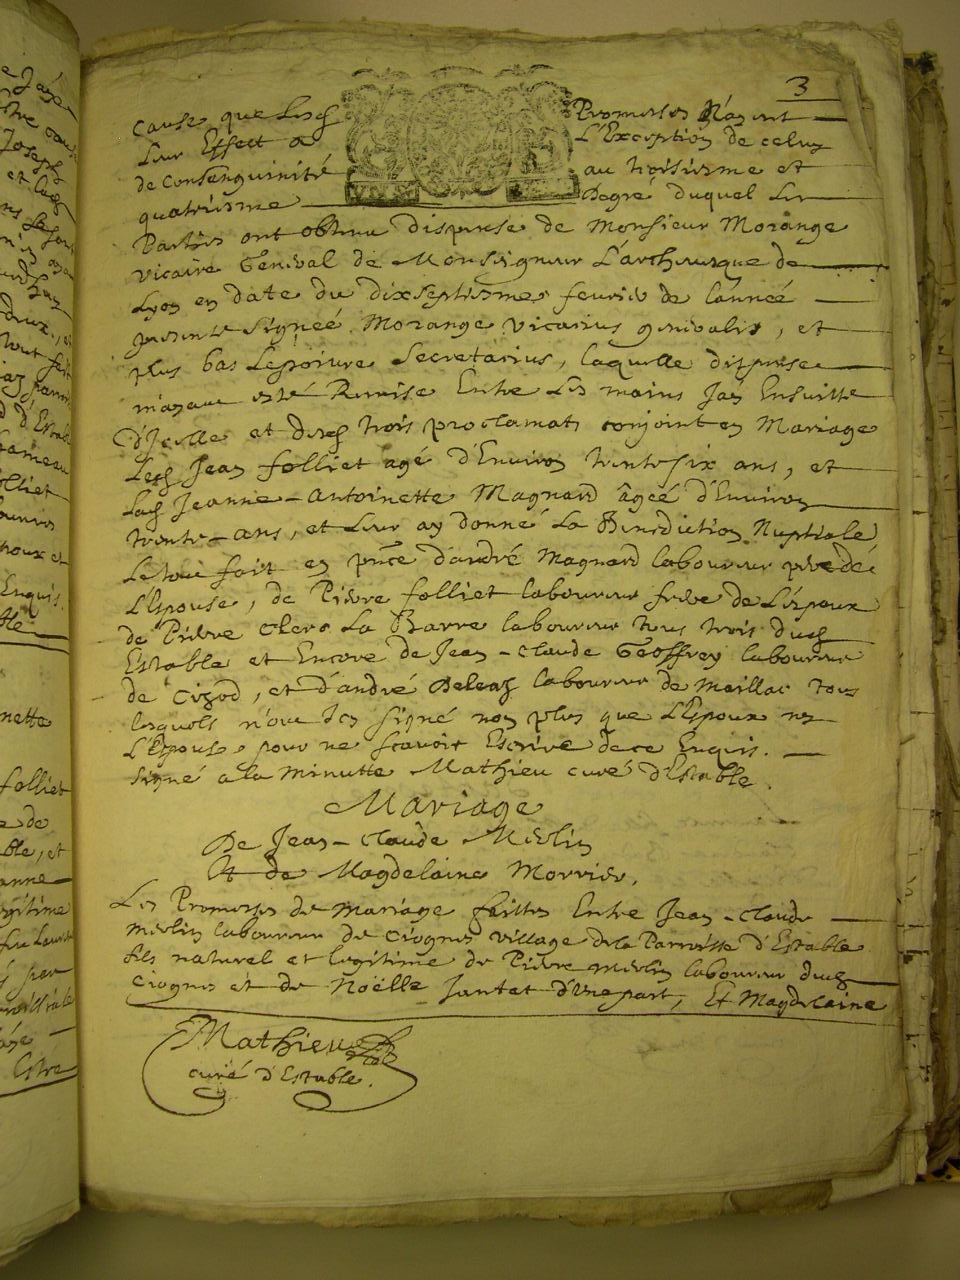 3
cause que lesd Promesses N'ayent
leur Effect a L'Exception de celuy
de Consanguinité au troisiesme et
quatriesme Degré duquel les
Parties ont obtenu dispense de Monsieur Morange
vicaire General de Monseigneur L'archevesque de
Lyon en date du dixseptiesme feurier de lannée
presente signéé Morange vicarius generalis, et
plus bas Lespoivre Secretarius, laquelle dispense
m'ayant esté Remise Entre les mains Jay Ensuitte
d'Jcelle et desd trois proclamats conjoint en Mariage
Led Jean folliet agé d'Environ trente six ans, et
Lad Jeanne-Antoinette Magnard âgéé d'Environ
trente-ans, et Leur ay donné La Benediction Nuptiale
Le tout fait en pnce d'andré Magnard laboureur pere de
L'Espouse, de Pierre folliet laboureur frere de L'Espoux
de Pierre Clerc La Barre laboureur tous trois dud
Estable et Encore de Jean-Claude Geoffrey laboureur
de Cizod, et d'andré laboureur de Maillac tous
lesquels n'ont signé non plus que L'Espoux ny
L'Espouse pour ne scavoir Escrire de ce Enquis.
signé a la minutte Mathieu curé d'Estable.
Mariage
De Jean-Claude Merlin
Et de Magdelaine Morrier.
Les Promesses de Mariage faittes Entre Jean-Claude
Merlin laboureur de Ciognes village de la Parroisse d'Estable
fils naturel et legitime de Pierre Merlin laboureur dud
Ciognes et de Noëlle Jantet d'Vne part, Et Magdelaine
Mathieu
curé d'Estable.